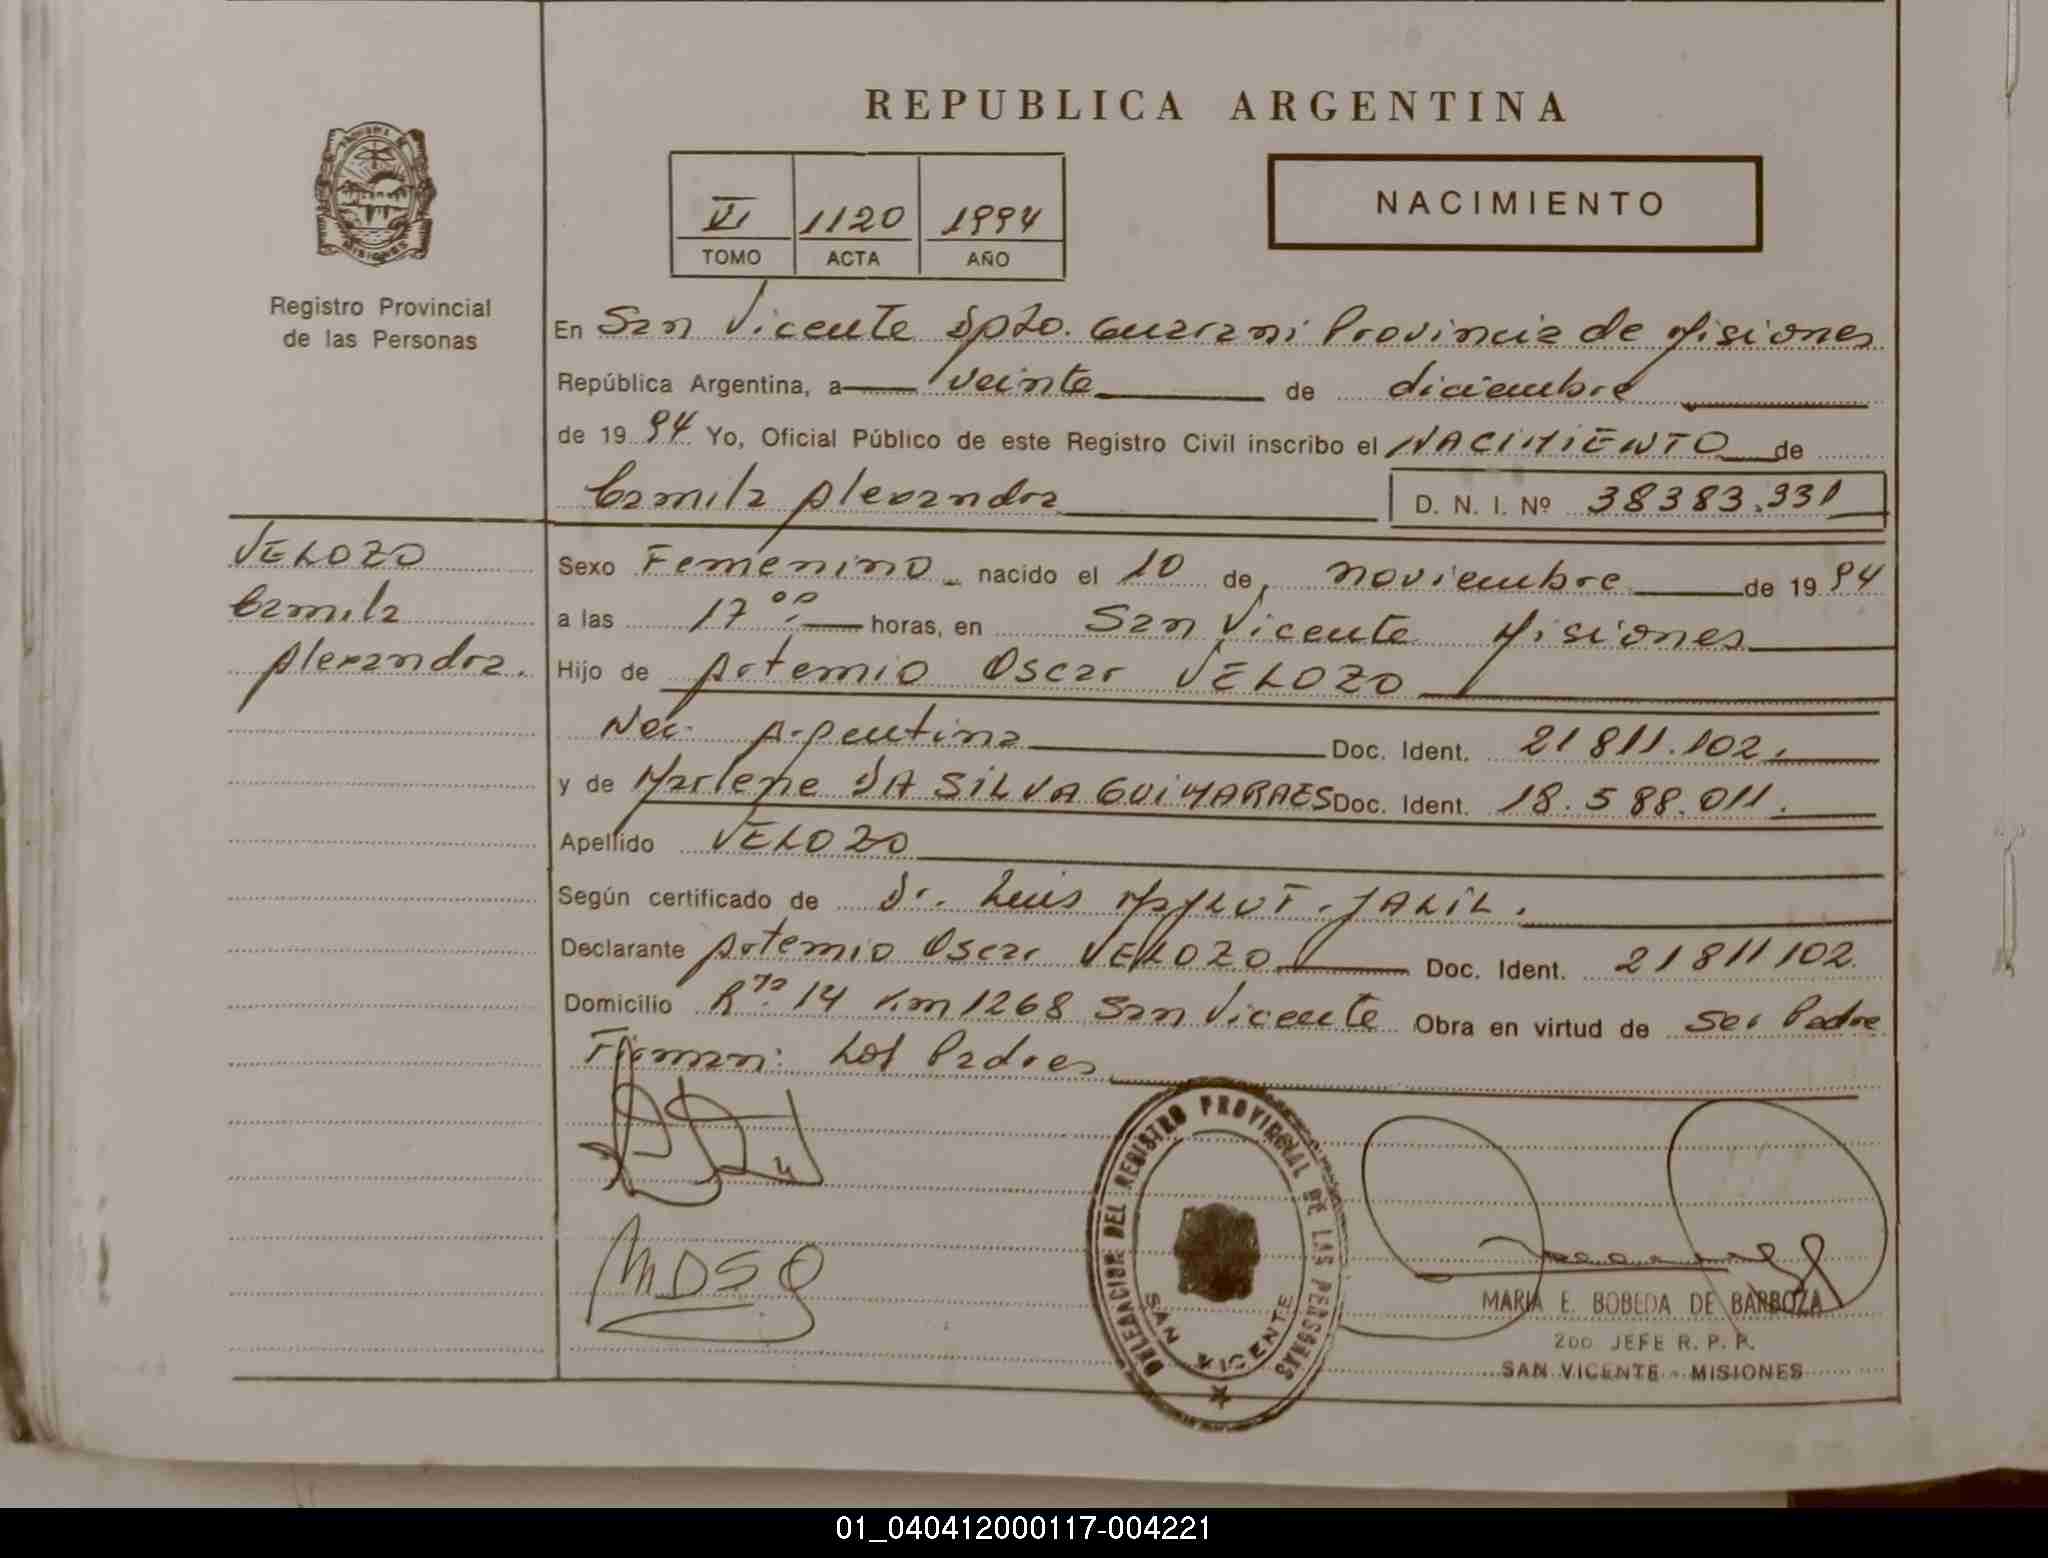 REPUBLICA ARGENTINA
VI 1120 1994
TOMO ACTA AÑO
NACIMIENTO
MISIONES
Registro Provincial
de las Personas
En San Vicente Dpto. Guarani Provincia de Misiones
República Argentina, a veinte de diciembre
de 1994 Yo, Oficial Público de este Registro Civil inscribo el NACIMIENTO de
Camila Alexandra D. N. I. Nº 38383.331
VELOZO
Camila
Alexandra.
Sexo Femenino nacido el 10 de noviembre de 1994
a las 17 00 horas, en San Vicente Misiones
Hijo de Artemio Oscar VELOZO
Nac. Argentina Doc. Ident. 21811.102.
y de Marlene DA SILVA GUIMARAES Doc. Ident. 18.588.011.
Apellido VELOZO
Según certificado de Dr. Luis JALIL.
Declarante Artemio Oscar VELOZO Doc. Ident. 21811102.
Domicilio Rta 14 Km 1268 San Vicente Obra en virtud de ser Padre
Firman: Los Padres
MDSG
DELEGACION DEL REGISTRO PROVINCIAL DE LAS PERSONAS
SAN VICENTE
MARIA E. BOBEDA DE BARBOZA
2DO JEFE R. P. P.
SAN VICENTE - MISIONES
01_040412000117-004221